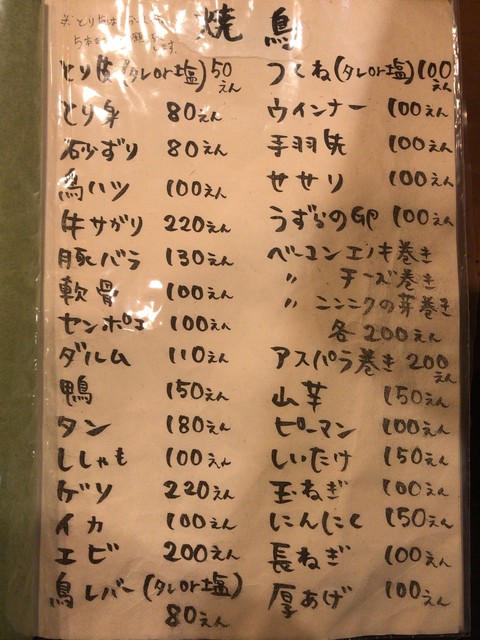 焼鳥
とり皮(タレor塩)50えん
とり身 80えん
砂ずり 80えん
鳥ハツ 100えん
牛サガリ 220えん
豚バラ 130えん
軟骨 100えん
センポコ 100えん
ダルム 110えん
鴨 150えん
タン 180えん
ししゃも 100えん
ゲソ 220えん
イカ 100えん
エビ 200えん
鳥レバー(タレor塩)
80えん
つくね(タレor塩)100えん
ウインナー 100えん
手羽先 100えん
せせり 100えん
うずらの卵 100えん
ベーコンエノキ巻き
〃 チーズ巻き
〃 ニンニクの芽巻き
各200えん
アスパラ巻き 200えん
山芋 150えん
ピーマン 100えん
しいたけ 150えん
玉ねぎ 100えん
にんにく 150えん
長ねぎ 100えん
厚あげ 100えん